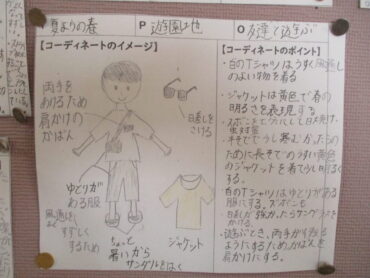 夏よりの春
P 遊園地
O 友達と遊ぶ
【コーディネートのイメージ】
両手を
あけるため
肩かけの
かばん
日差しを
さける
ゆとりが
ある服
風通しを
よく
すずしく
するため
ちょっと
暑いから
サンダルをはく
ジャケット
【コーディネートのポイント】
・白のTシャツはうすく風通し
のよい物を着る
・ジャケットは黄色で春の
明るさを表現する
虫対策
・半そでで少し寒かったら
ために長そでのうすい黄色
のジャケットを着て少し明るく
する。
・白のTシャツはゆとりがある
服にする。ズボンも
・日差しが強かったらサングラスを
かける。
・遊ぶとき、両手があける
ようにするため、かばんを
肩かけにする。